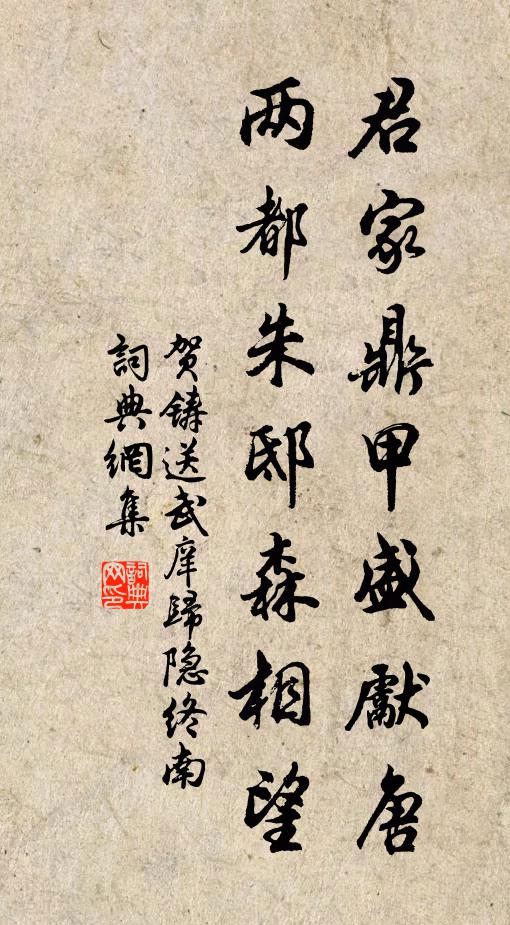 君家鼎甲盛獻唐
两都朱邸森相望
贺鑄送武庠歸隐终南
詞典網集
詞典网印